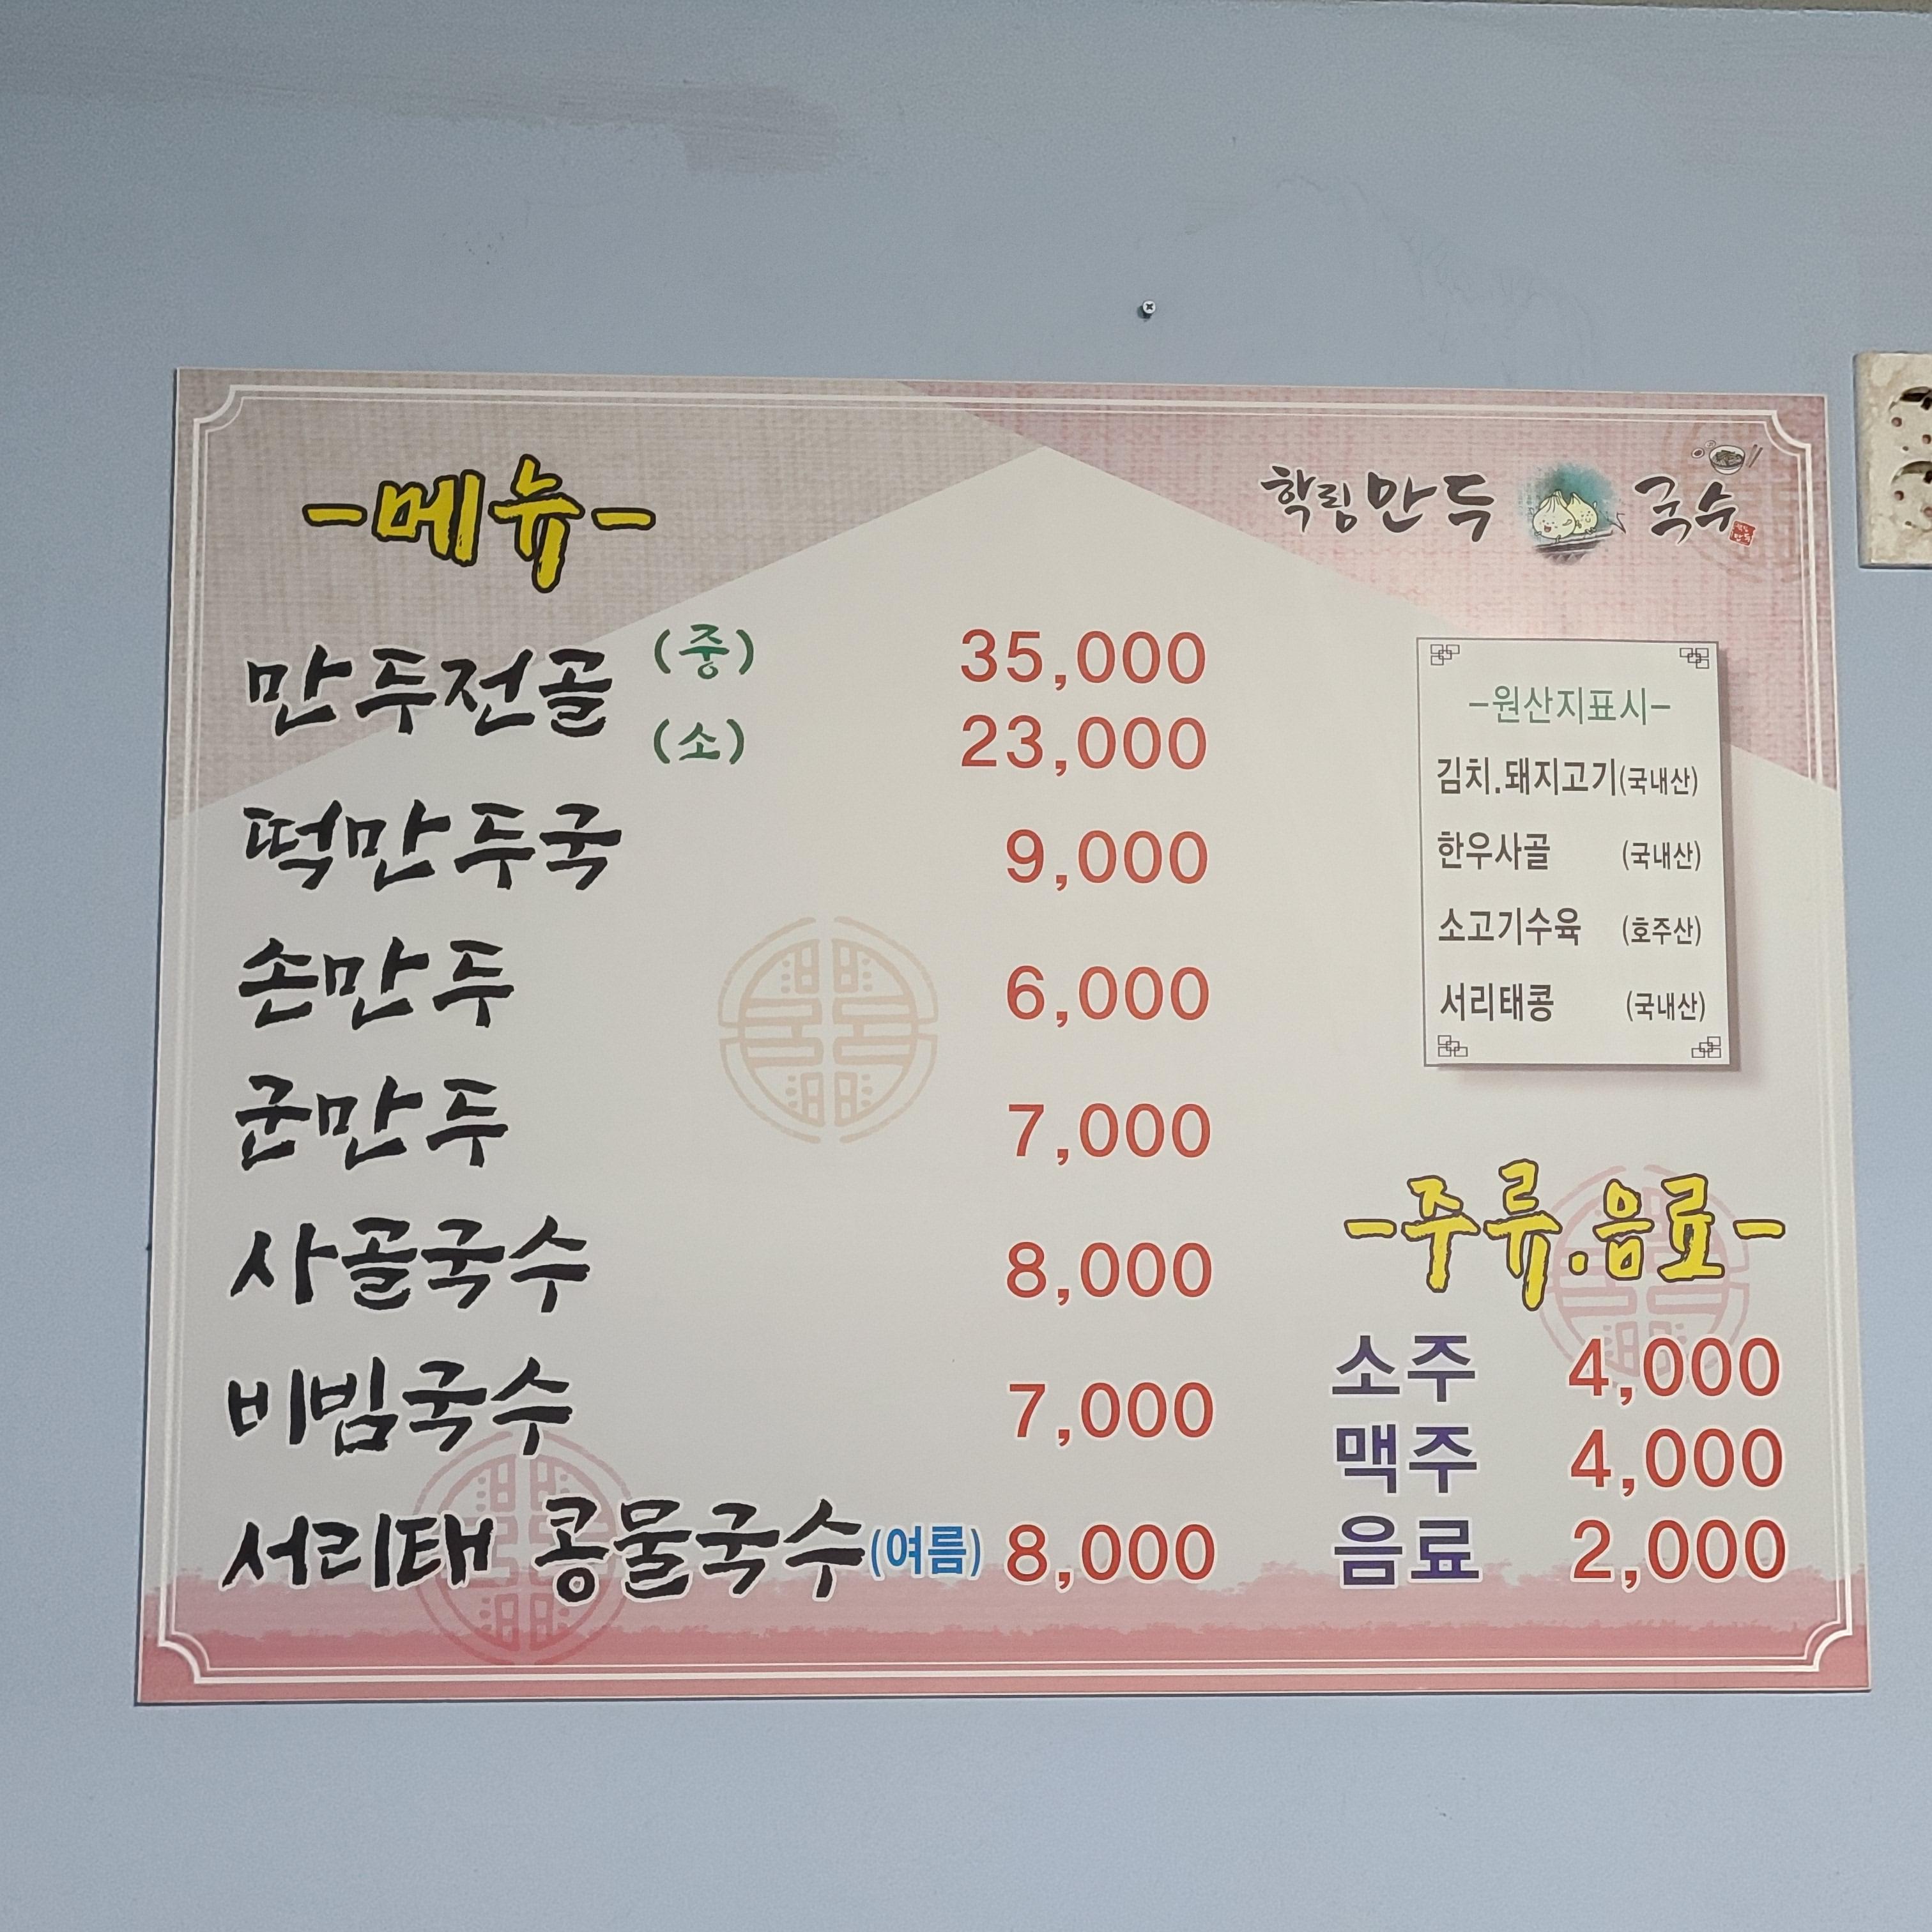 -메뉴-
학림만두 국수
만두전골 (중) 35,000
(소) 23,000
떡만두국 9,000
손만두 6,000
군만두 7,000
사골국수 8,000
비빔국수 7,000
서리태 콩물국수(여름) 8,000
-원산지표시-
김치.돼지고기(국내산)
한우사골 (국내산)
소고기수육 (호주산)
서리태콩 (국내산)
-주류.음료-
소주 4,000
맥주 4,000
음료 2,000